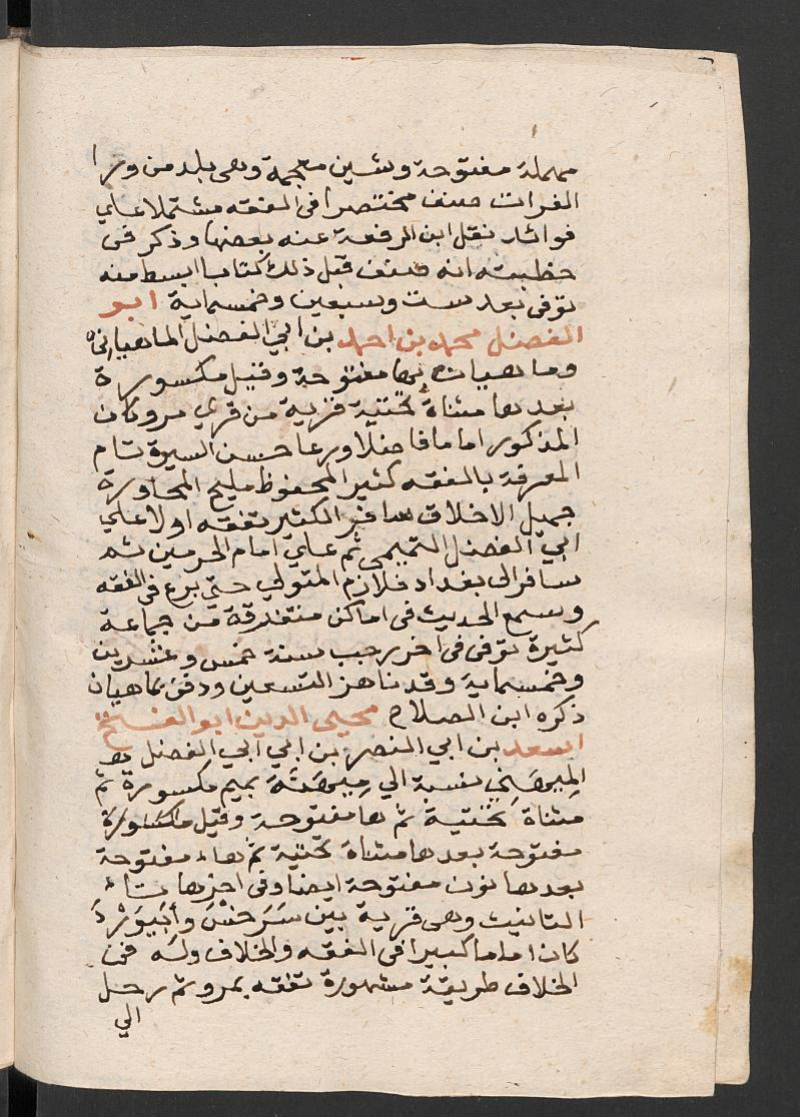 مهملة مفتوحة وشين معجمة وهى بلد من ورا
الفرات صنف مختصرا فى الفقه مشتملا علي
فوائد نقل ابن الرفعة عنه بعضها وذكر فى
خطبته انه صنف قبل ذلك كتابا ابسط منه
توفى بعد ست وسبعين وخمسماية ابو
الفضل محمد بن احمد بن ابي الفضل الماهيانى
وماهيان بها مفتوحة وقيل مكسورة
بعدها مثناة تحتية قرية من قري مرو وكان
المذكور اماما فاضلا ورعا حسن السيرة تام
المعرفة بالفقه كثير المحفوظ مليح المحاورة
جميل الاخلاق سافر الكثير تفقه اولا علي
ابي الفضل التميمى ثم علي امام الحرمين ثم
سافر الى بغداد فلازم المتولي حتي برع فى الفقه
وسمع الحديث فى اماكن متفرقة من جماعة
كثيرة توفى فى اخر رجب سنة خمس وعشرين
وخمسماية وقد ناهز التسعين ودفن بماهيان
ذكره ابن الصلاح محيى الدين ابو الفتح
اسعد بن ابي النصر بن ابي ابي الفضل
الميهني نسبة الي ميهنة بميم مكسورة ثم
مثناة تحتية ثم ها مفتوحة وقيل مكسورة
مفتوحة بعدها مثناة تحتية ثم هاء مفتوحة
بعدها نون مفتوحة ايضا وفى اخرها تاء
التانيث وهى قرية بين سرخس وأبيورد
كان اماما كبيرا فى الفقه والخلاف وله فى
الخلاف طريقة مشهورة تفقه بمرو ثم رحل
الي